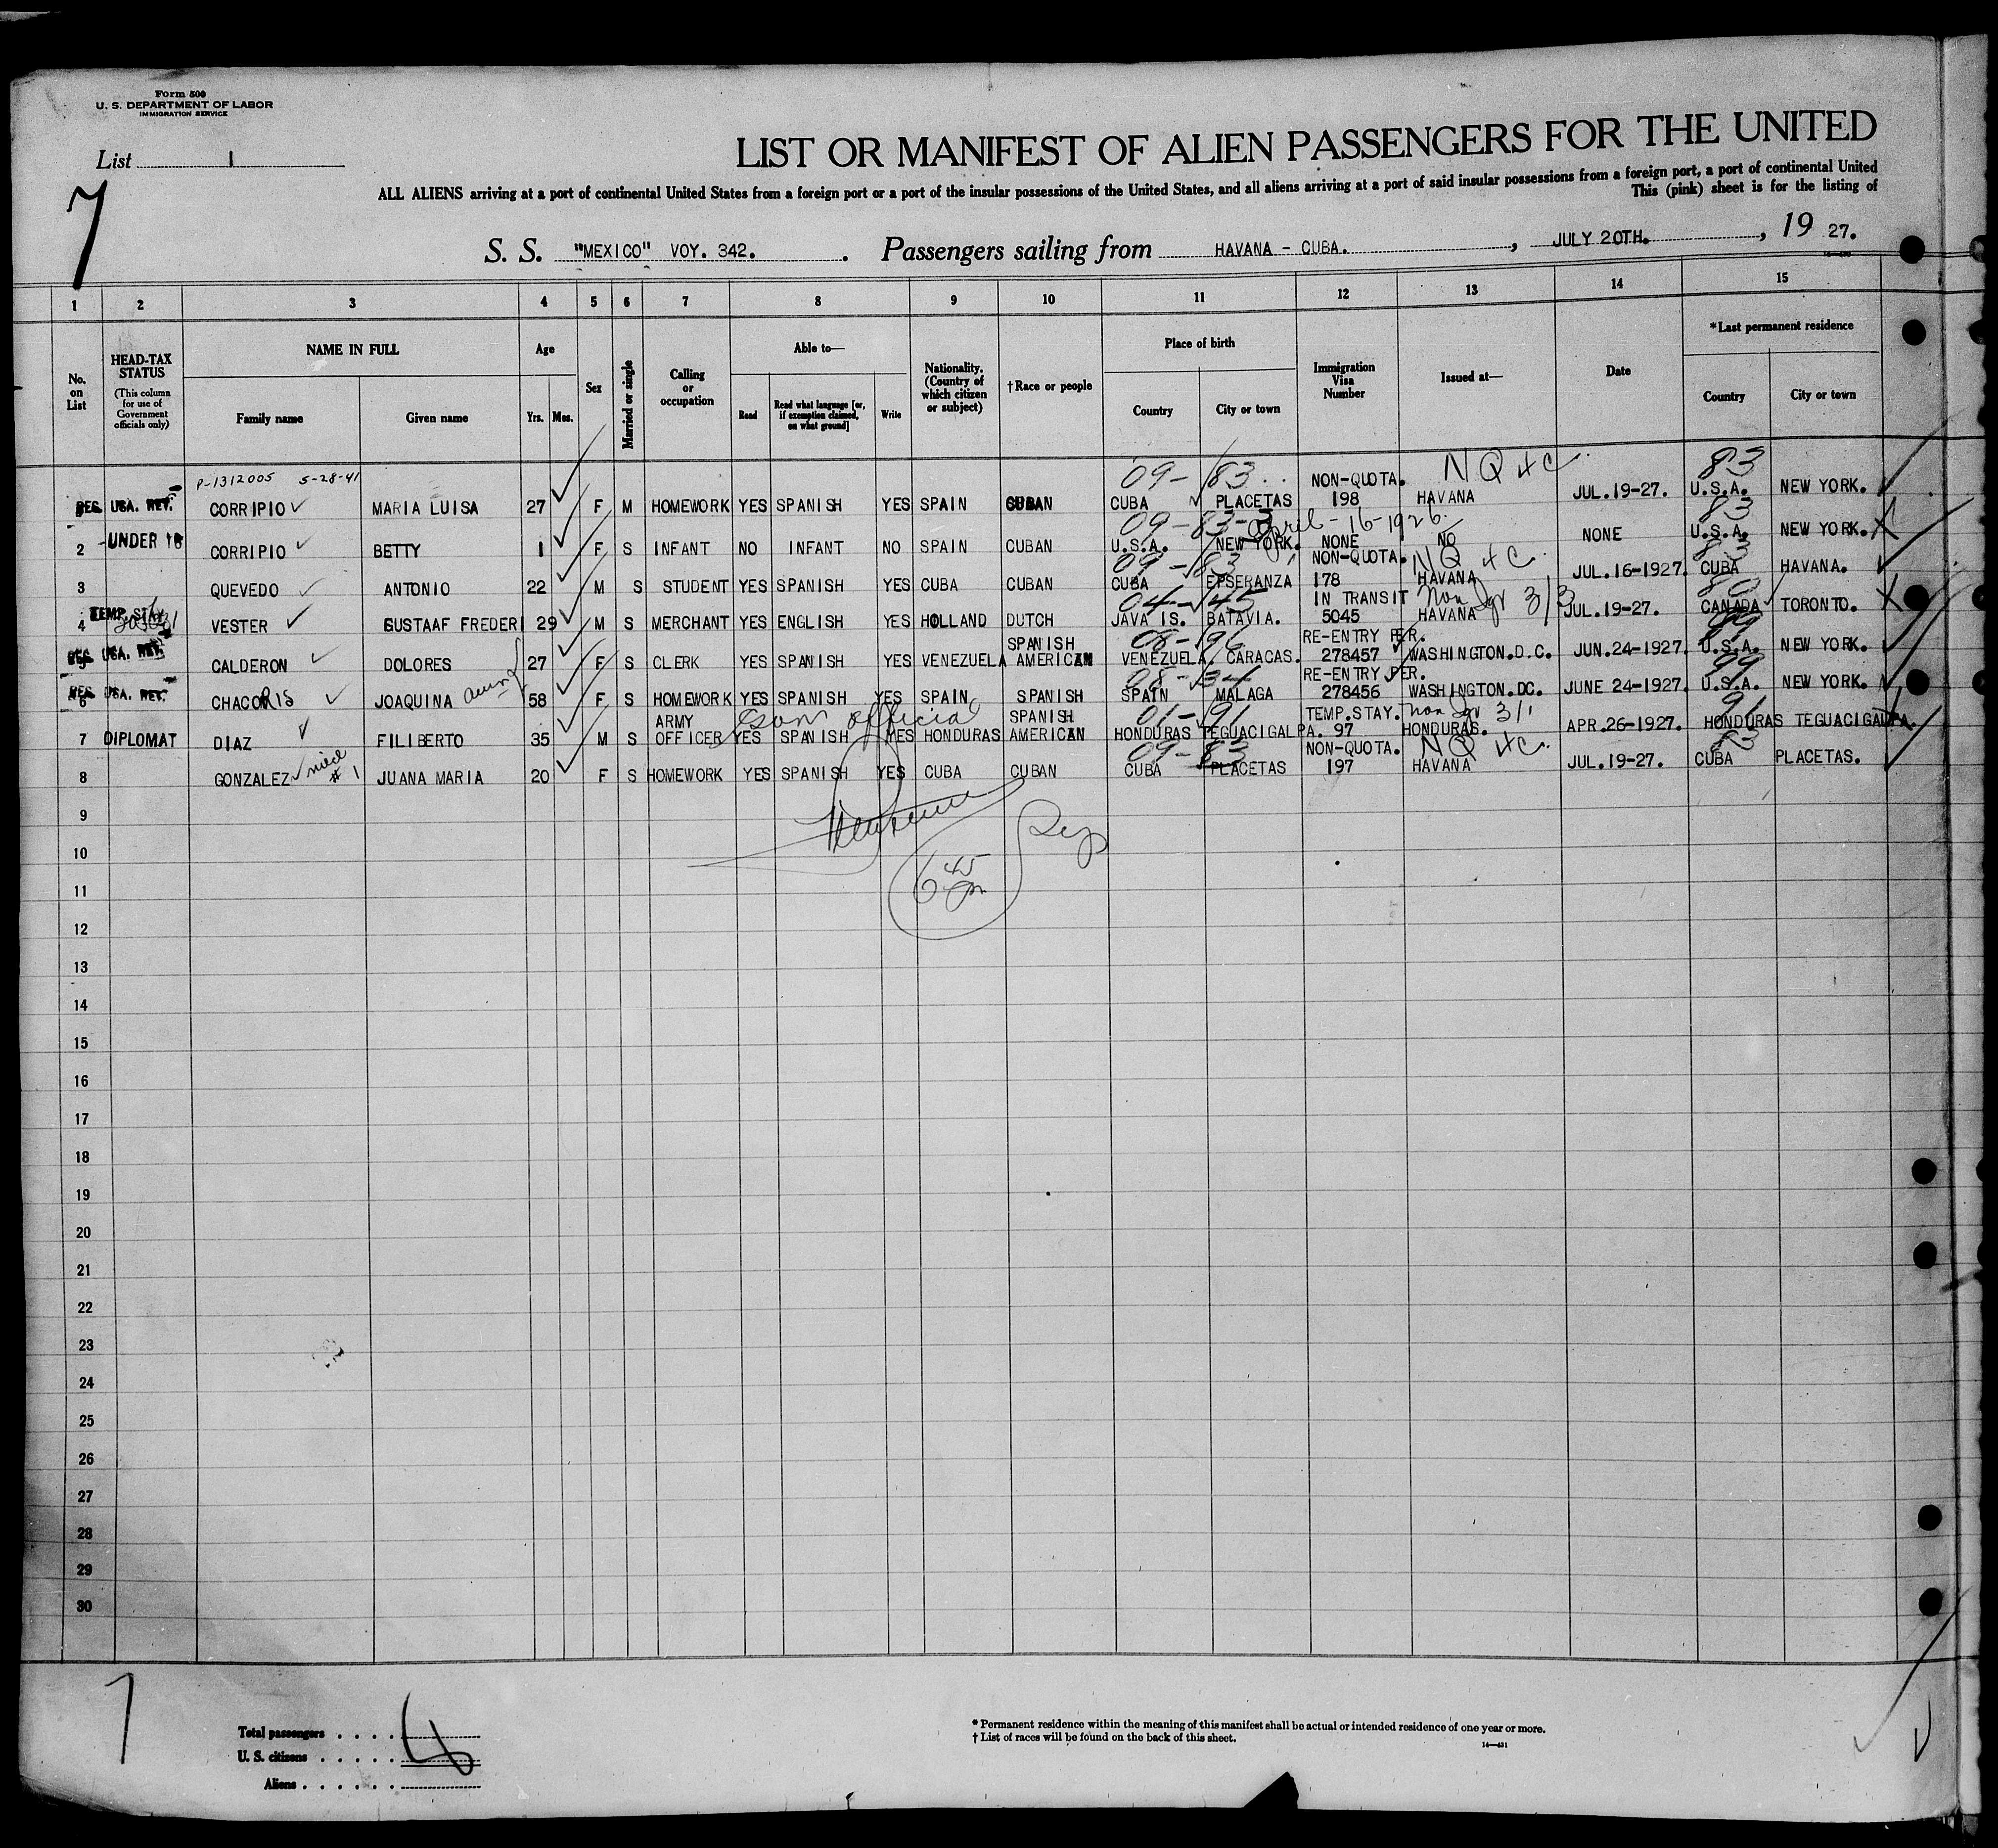 Form 500
U. S. DEPARTMENT OF LABOR
IMMIGRATION SERVICE
List 1
7
LIST OR MANIFEST OF ALIEN PASSENGERS FOR THE UNITED
ALL ALIENS arriving at a port of continental United States from a foreign port or a port of the insular possessions of the United States, and all aliens arriving at a port of said insular possessions from a foreign port, a port of continental United
This (pink) sheet is for the listing of
S. S. "MEXICO" VOY. 342. Passengers sailing from HAVANA - CUBA. , JULY 20TH. , 19 27.
1 2 3 4 5 6 7 8 9 10 11 12 13 14 15
No. on List
HEAD-TAX STATUS (This column for use of Government officials only)
NAME IN FULL
Family name Given name
Age
Yrs. Mos.
Sex
Married or single
Calling or occupation
Able to—
Read Read what language [or, if exemption claimed, on what ground] Write
Nationality. (Country of which citizen or subject)
†Race or people
Place of birth
Country City or town
Immigration Visa Number
Issued at—
Date
*Last permanent residence
Country City or town
P-1312005 5-28-41 09-83 NON-QUOTA. NQ 4c 83
USA. RET. CORRIPIO MARIA LUISA 27 F M HOMEWORK YES SPANISH YES SPAIN CUBAN CUBA PLACETAS 198 HAVANA JUL.19-27. U.S.A. NEW YORK.
09-83-3 April-16-1926 83
2 UNDER 16 CORRIPIO BETTY 1 F S INFANT NO INFANT NO SPAIN CUBAN U.S.A. NEW YORK. NONE NO NONE U.S.A. NEW YORK.
09-83 NON-QUOTA. NQ 4c 83
3 QUEVEDO ANTONIO 22 M S STUDENT YES SPANISH YES CUBA CUBAN CUBA EPSERANZA 178 HAVANA JUL.16-1927. CUBA HAVANA.
04-45 IN TRANSIT 3/3 80
4 TEMP. STAY VESTER GUSTAAF FREDERI 29 M S MERCHANT YES ENGLISH YES HOLLAND DUTCH JAVA IS. BATAVIA. 5045 HAVANA JUL.19-27. CANADA TORONTO.
SPANISH 08-96 RE-ENTRY PER. 99
USA. RET. CALDERON DOLORES 27 F S CLERK YES SPANISH YES VENEZUELA AMERICAN VENEZUELA. CARACAS. 278457 WASHINGTON.D.C. JUN.24-1927. U.S.A. NEW YORK.
08-34 RE-ENTRY PER. 99
6 USA. RET. CHACORIS JOAQUINA aunt 58 F S HOMEWORK YES SPANISH YES SPAIN SPANISH SPAIN MALAGA 278456 WASHINGTON.DC. JUNE 24-1927. U.S.A. NEW YORK.
ARMY Gov official SPANISH 01-91 TEMP.STAY. 3/1 91
7 DIPLOMAT DIAZ FILIBERTO 35 M S OFFICER YES SPANISH YES HONDURAS AMERICAN HONDURAS TEGUACIGALPA. 97 HONDURAS. APR.26-1927. HONDURAS TEGUACIGALPA.
09-83 NON-QUOTA. NQ 4c 83
8 GONZALEZ niece #1 JUANA MARIA 20 F S HOMEWORK YES SPANISH YES CUBA CUBAN CUBA PLACETAS 197 HAVANA JUL.19-27. CUBA PLACETAS.
9
10
11 6 45 pm
12
13
14
15
16
17
18
19
20
21
22
23
24
25
26
27
28
29
30
Total passengers . . . .
U. S. citizens . . . . .
Aliens . . . . . .
* Permanent residence within the meaning of this manifest shall be actual or intended residence of one year or more.
† List of races will be found on the back of this sheet.
14—431